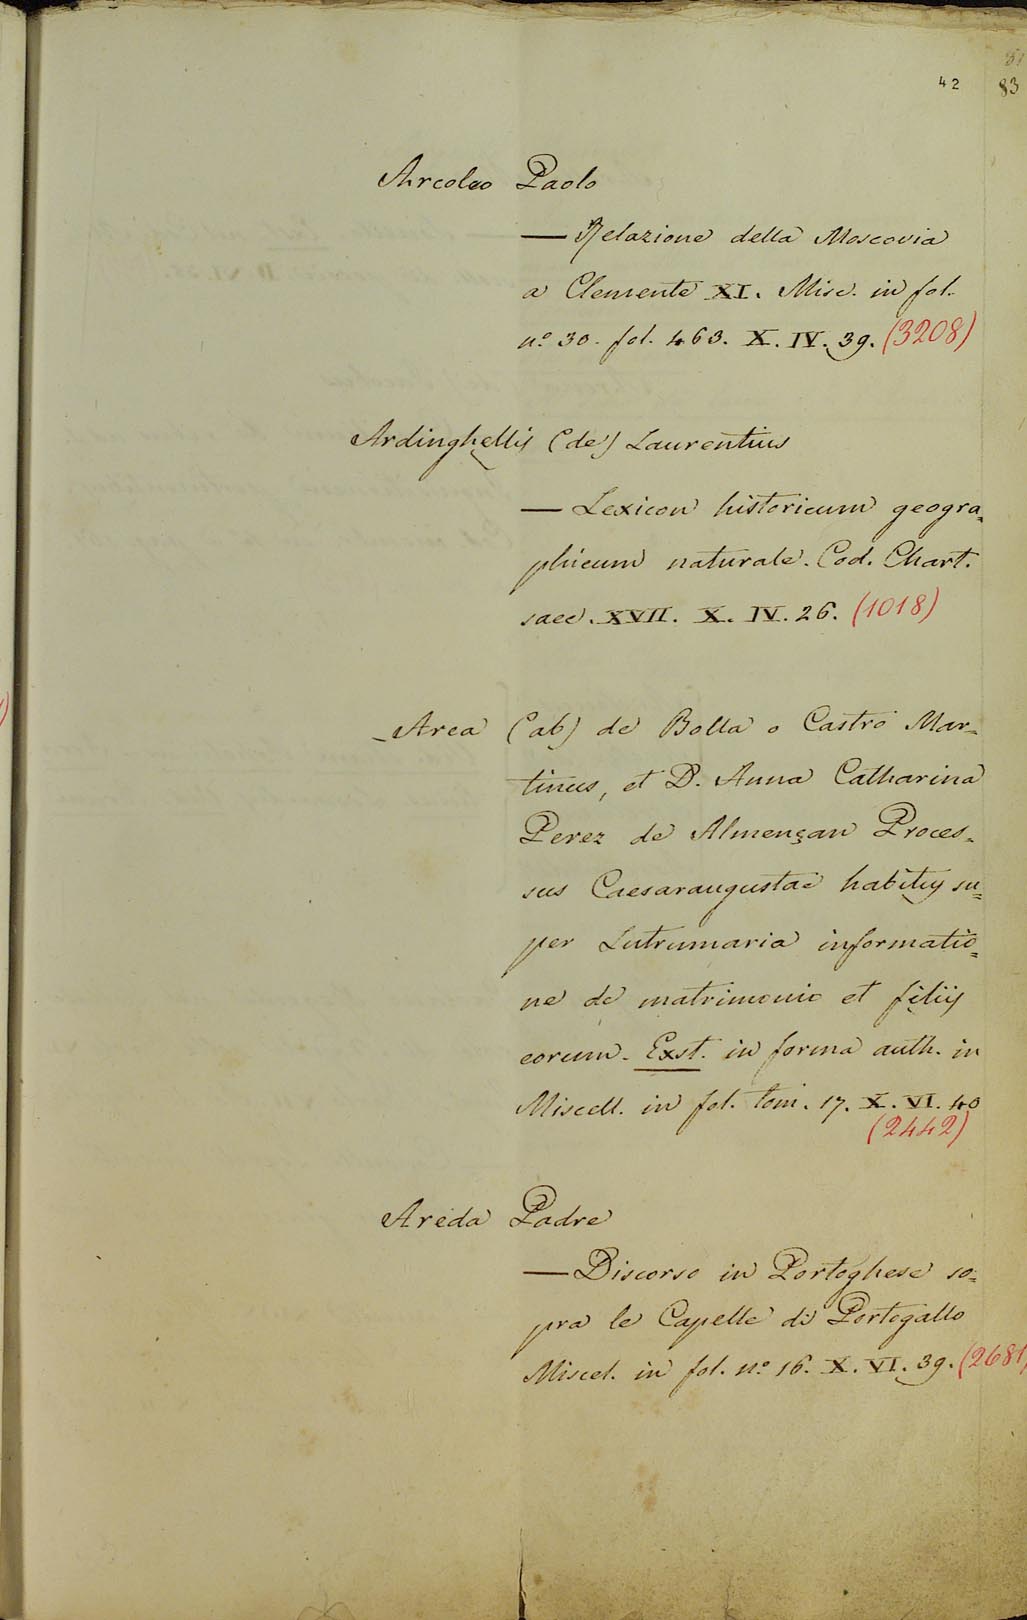 42 83
Arcoleo Paolo
— Relazione della Moscovia
a Clemente XI. Misc. in fol.
nº 30. fol. 463. X. IV. 39. (3208)
Ardinghellis (de) Laurentius
— Lexicon historicum geogra=
phicum naturale. Cod. Chart.
saec. XVII. X. IV. 26. (1018)
Area (ab) de Bolla o Castro Mar=
tinus, et D. Anna Catharina
Perez de Almençan Proces=
sus Caesaraugustae habitus su=
per Lutrumaria informatio=
ne de matrimonio et filiis
eorum. Exst. in forma auth. in
Miscell. in fol. tom. 17. X. VI. 40
(2442)
Areda Padre
— Discorso in Portoghese so=
pra le Capelle di Portogallo
Miscel. in fol. nº 16. X. VI. 39. (2681)